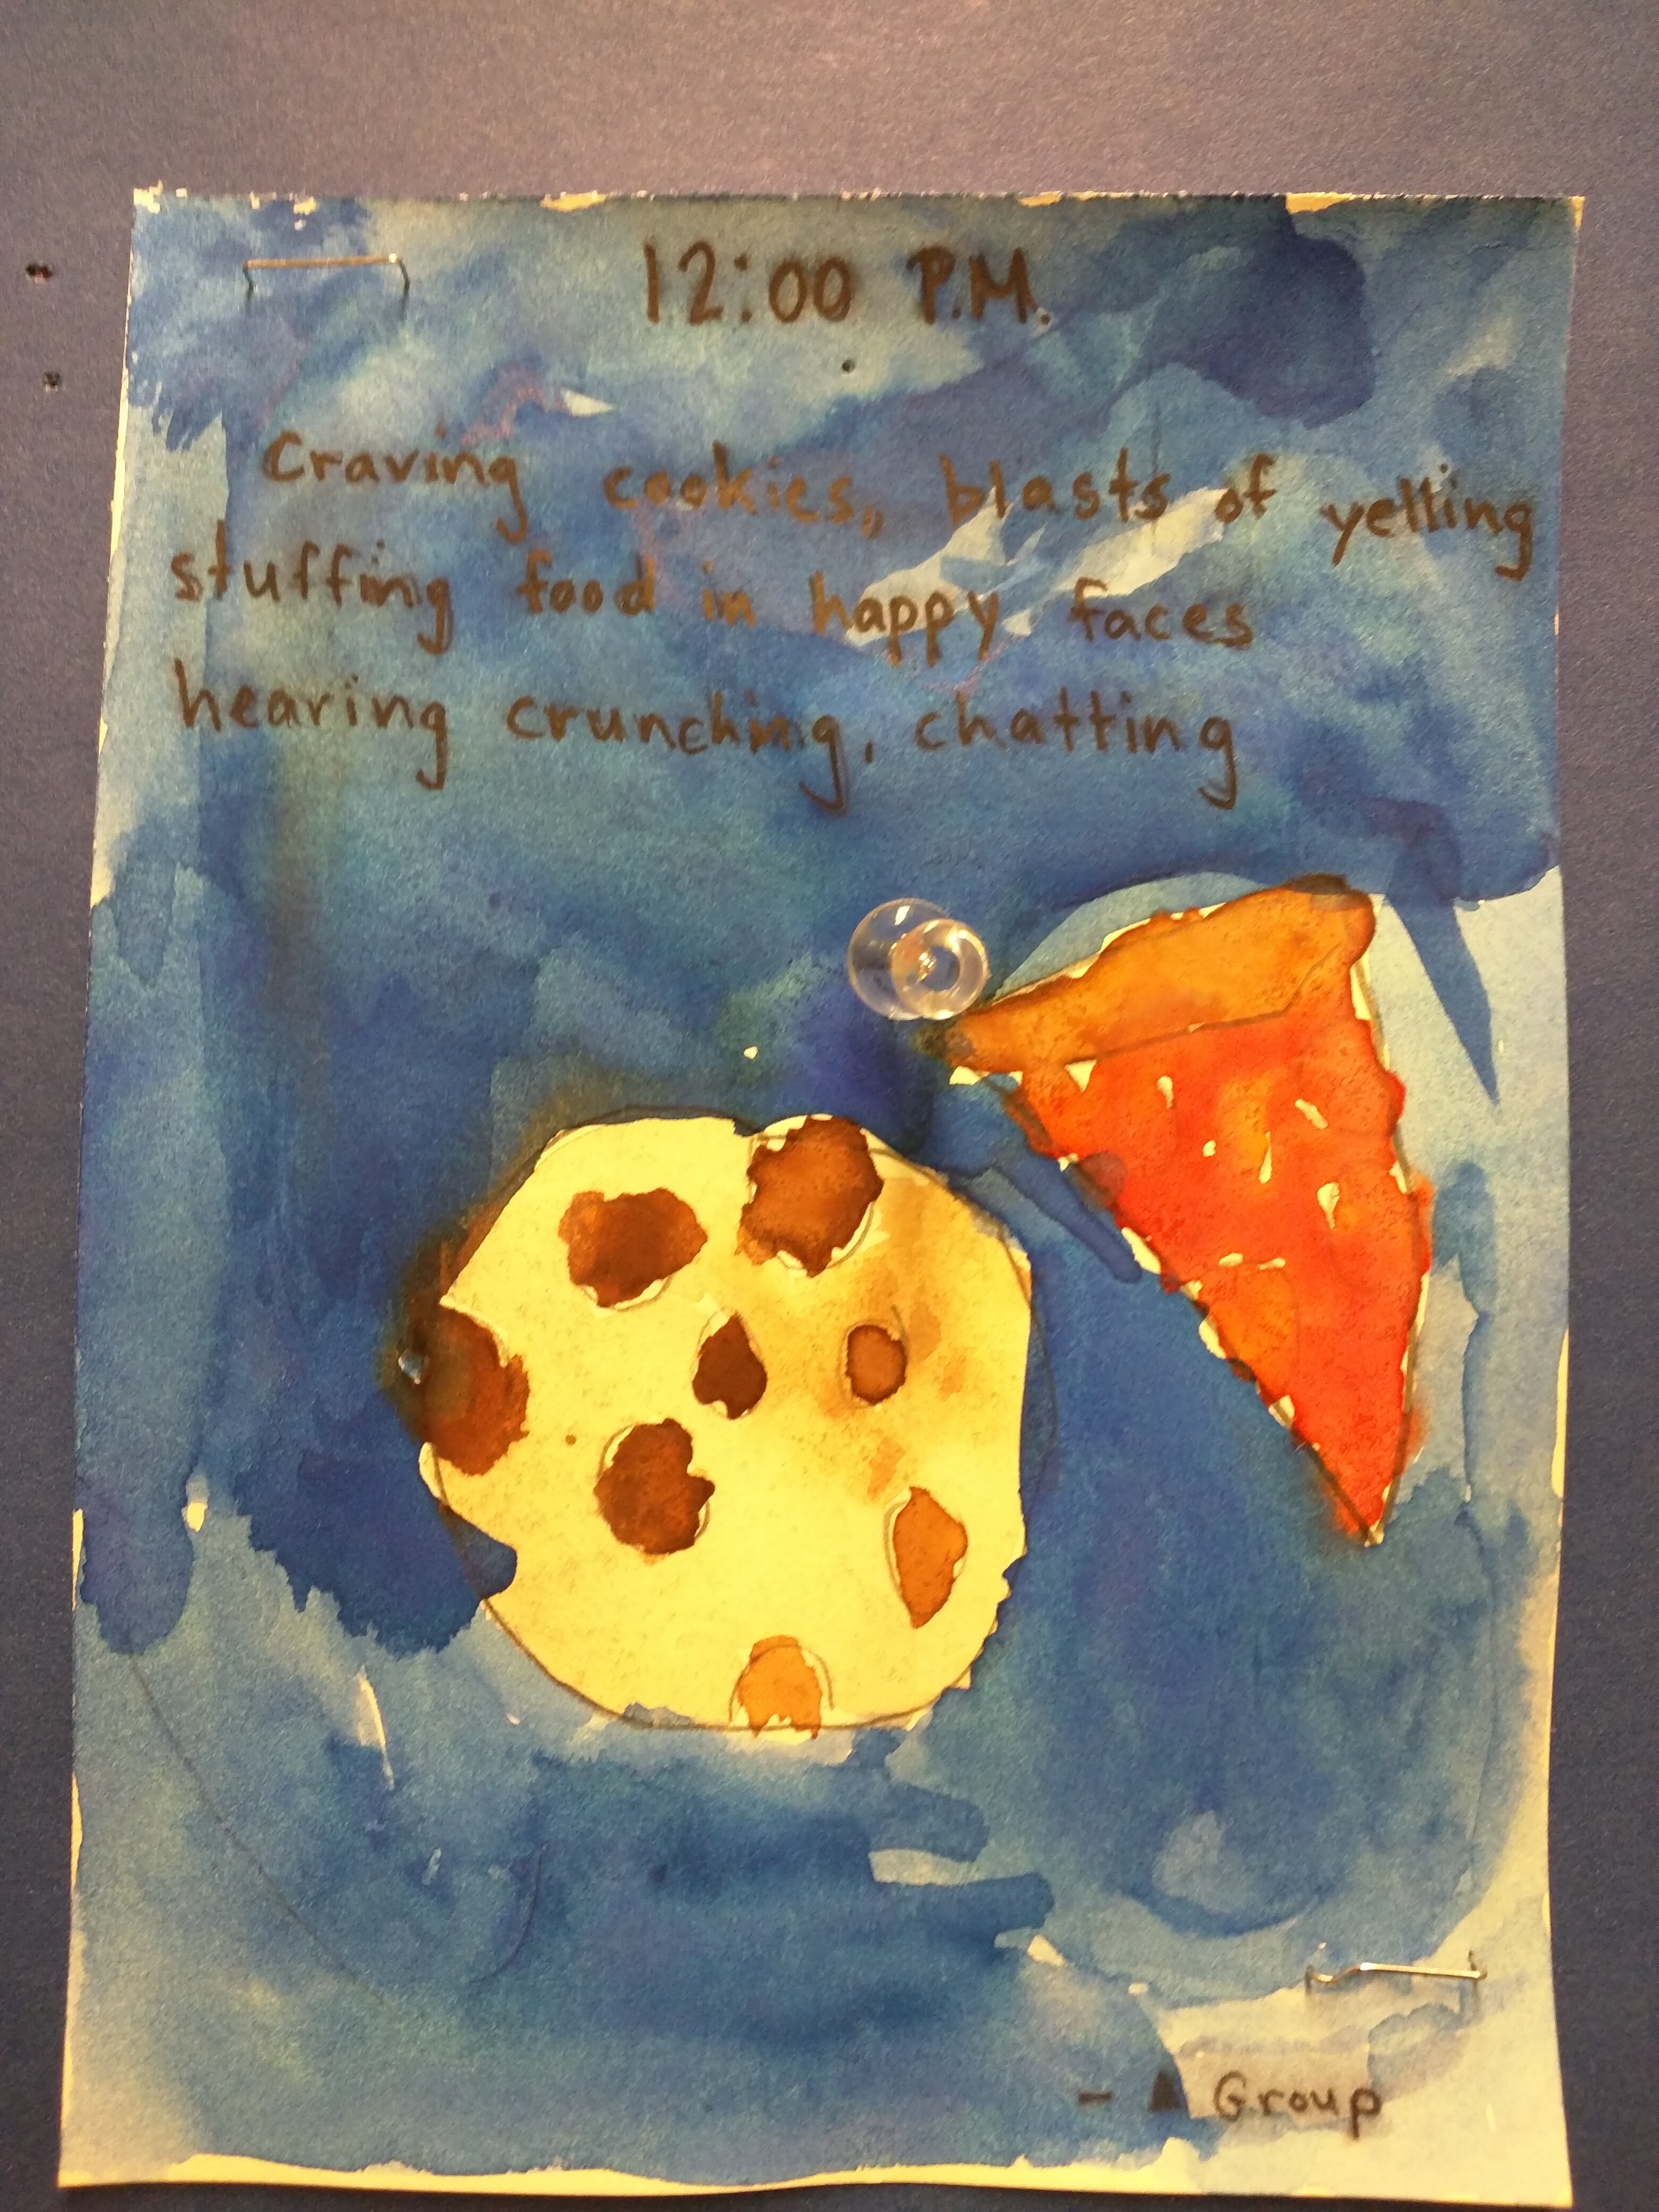 12:00 P.M.
Craving cookies, blasts of yelling
stuffing food in happy faces
hearing crunching, chatting
- A Group